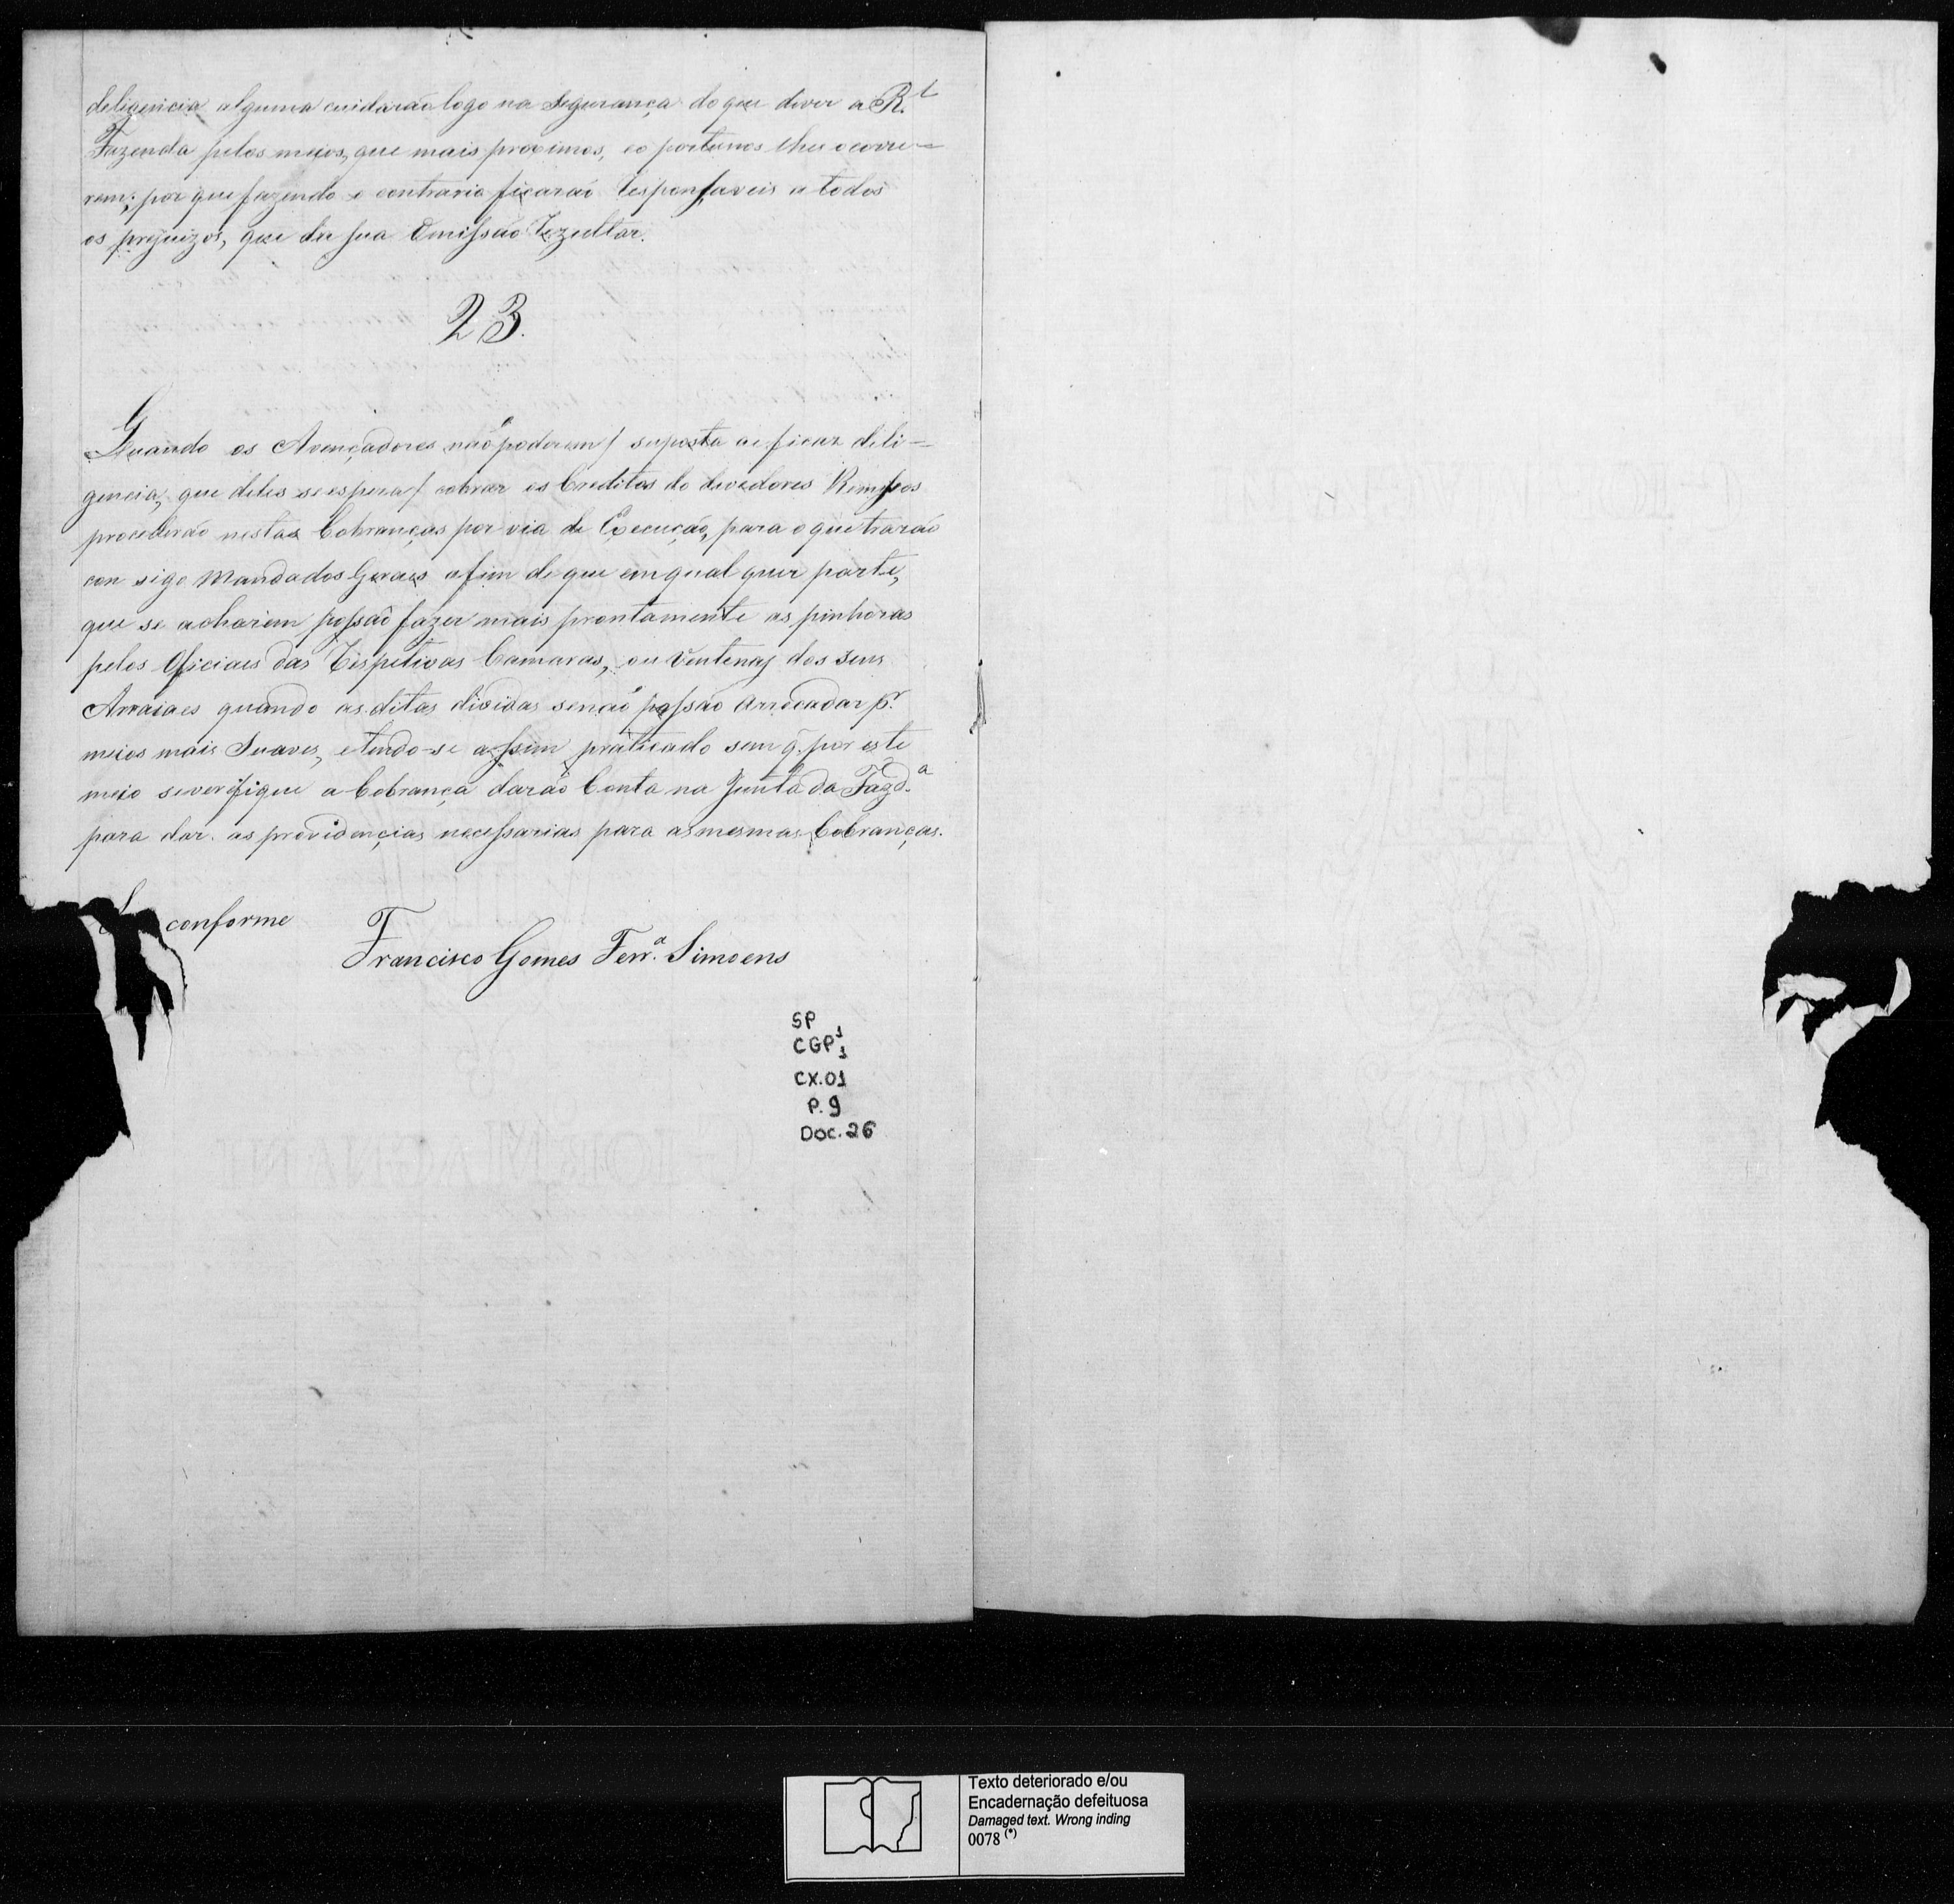 deligencia alguma cuidaráo logo na Segurança do que dever a R.l
Fazenda pelos meios, que mais proximos, eo portunos lhes ocorre=
rem; por que fazendo o contrario ficaraó responsaveis a todos
os prejuizos, que da sua Omissaó rezultar.
23.
Quando os Avençadores naó poderem / suposta aeficaz deli=
gencia, que deles se espera / cobrar os Creditos do devedores Remissos
procederáo nestas Cobranças por via de Execuçáo, para o que traráo
con sigo Mandados Geraes afim de que em qual quer parte,
que se acharem possaó fazer mais prontamente as pinhoras
pelos Oficiaes das respetivas Camaras, ou Ventenas dos seus
Arraiaes quando as ditas dividas senaó possáo arrecadar pr.
meios mais Suaves, etendo-se assim praticado sem q̃. por este
meio severifique a Cobrança daráo Conta na Junta da Fazd.a
para dar as providencias necessarias para as mesmas Cobranças.
conforme
Francisco Gomes Ferr.a Simoens
SP
CGP 1 1
CX.01
P.9
Doc.26
Texto deteriorado e/ou
Encadernação defeituosa
Damaged text. Wrong inding
0078 (*)